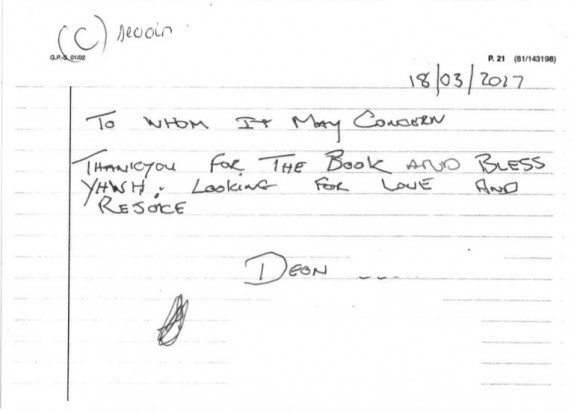 (C)
G.P.-S. 01/02
P. 21 (81/143198)
18/03/2017
To WHOM It May CONCERN
THANKYOU FOR THE BOOK AND BLESS
YHWH. LOOKING FOR LOVE AND
REJOICE
DEON ---